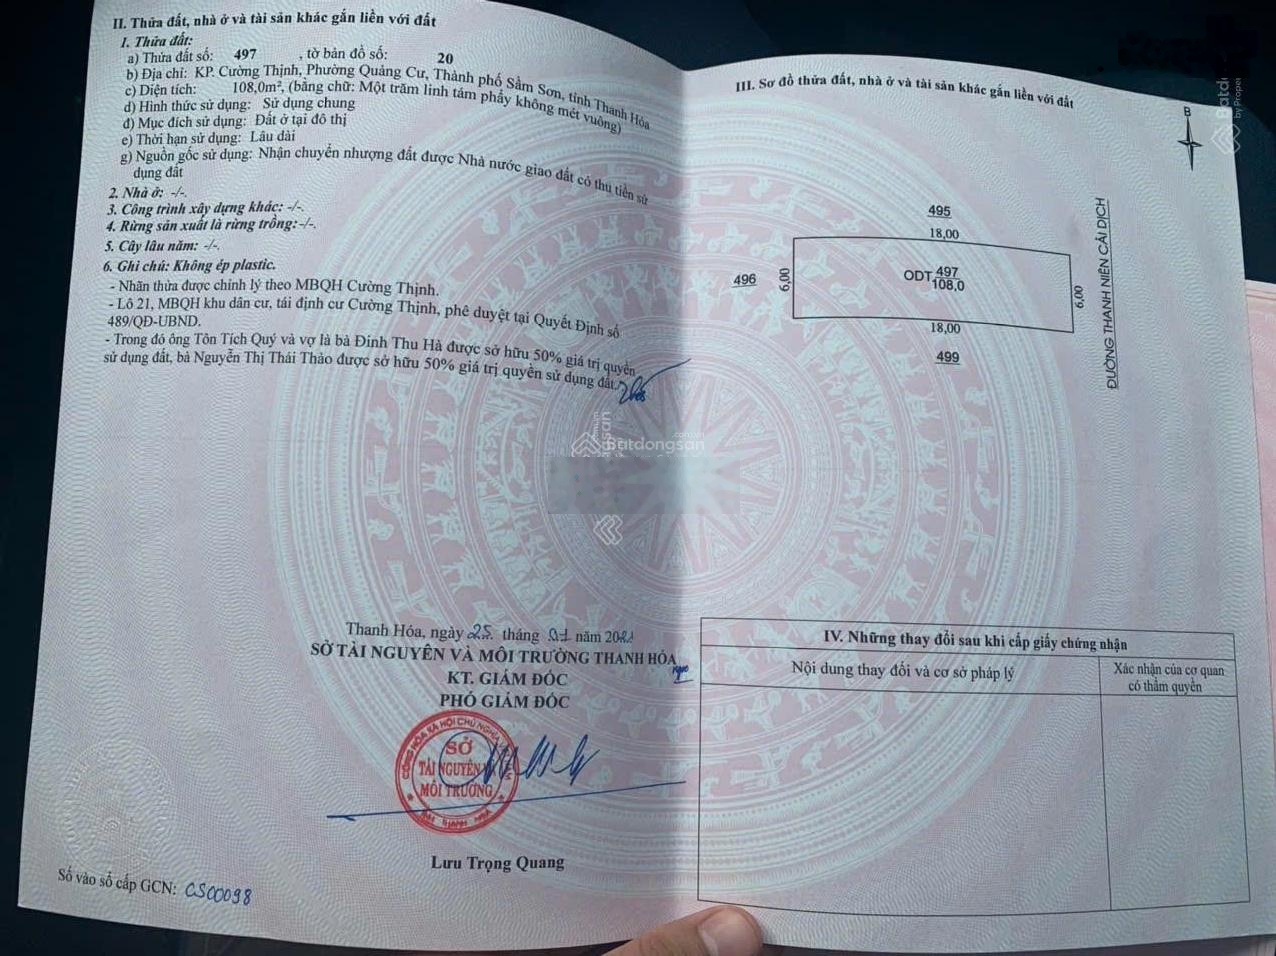 II. Thửa đất, nhà ở và tài sản khác gắn liền với đất
1. Thửa đất:
a) Thửa đất số: 497 , tờ bản đồ số: 20
b) Địa chỉ: KP. Cường Thịnh, Phường Quảng Cư, Thành phố Sầm Sơn, tỉnh Thanh Hóa
c) Diện tích: 108,0m², (bằng chữ: Một trăm linh tám phẩy không mét vuông)
d) Hình thức sử dụng: Sử dụng chung
đ) Mục đích sử dụng: Đất ở tại đô thị
e) Thời hạn sử dụng: Lâu dài
g) Nguồn gốc sử dụng: Nhận chuyển nhượng đất được Nhà nước giao đất có thu tiền sử
dụng đất
2. Nhà ở: -/-.
3. Công trình xây dựng khác: -/-.
4. Rừng sản xuất là rừng trồng: -/-.
5. Cây lâu năm: -/-.
6. Ghi chú: Không ép plastic.
- Nhãn thửa được chỉnh lý theo MBQH Cường Thịnh.
- Lô 21, MBQH khu dân cư, tái định cư Cường Thịnh, phê duyệt tại Quyết Định số
489/QĐ-UBND.
- Trong đó ông Tôn Tích Quý và vợ là bà Đinh Thu Hà được sở hữu 50% giá trị quyền
sử dụng đất, bà Nguyễn Thị Thái Thảo được sở hữu 50% giá trị quyền sử dụng đất.
Thanh Hóa, ngày 25 tháng 01 năm
SỞ TÀI NGUYÊN VÀ MÔI TRƯỜNG THANH HÓA
KT. GIÁM ĐỐC
PHÓ GIÁM ĐỐC
CỘNG HÒA XÃ HỘI CHỦ NGHĨA
SỞ
TÀI NGUYÊN
MÔI TRƯỜNG
Lưu Trọng Quang
Số vào sổ cấp GCN: CS00098
III. Sơ đồ thửa đất, nhà ở và tài sản khác gắn liền với đất
B
495
18,00
496
6,00
ODT 497
108,0
6,00
18,00
499
ĐƯỜNG THANH NIÊN CẢI DỊCH
IV. Những thay đổi sau khi cấp giấy chứng nhận
Nội dung thay đổi và cơ sở pháp lý
Xác nhận của cơ quan
có thẩm quyền
Batdongsan
.com.vn
by Propei